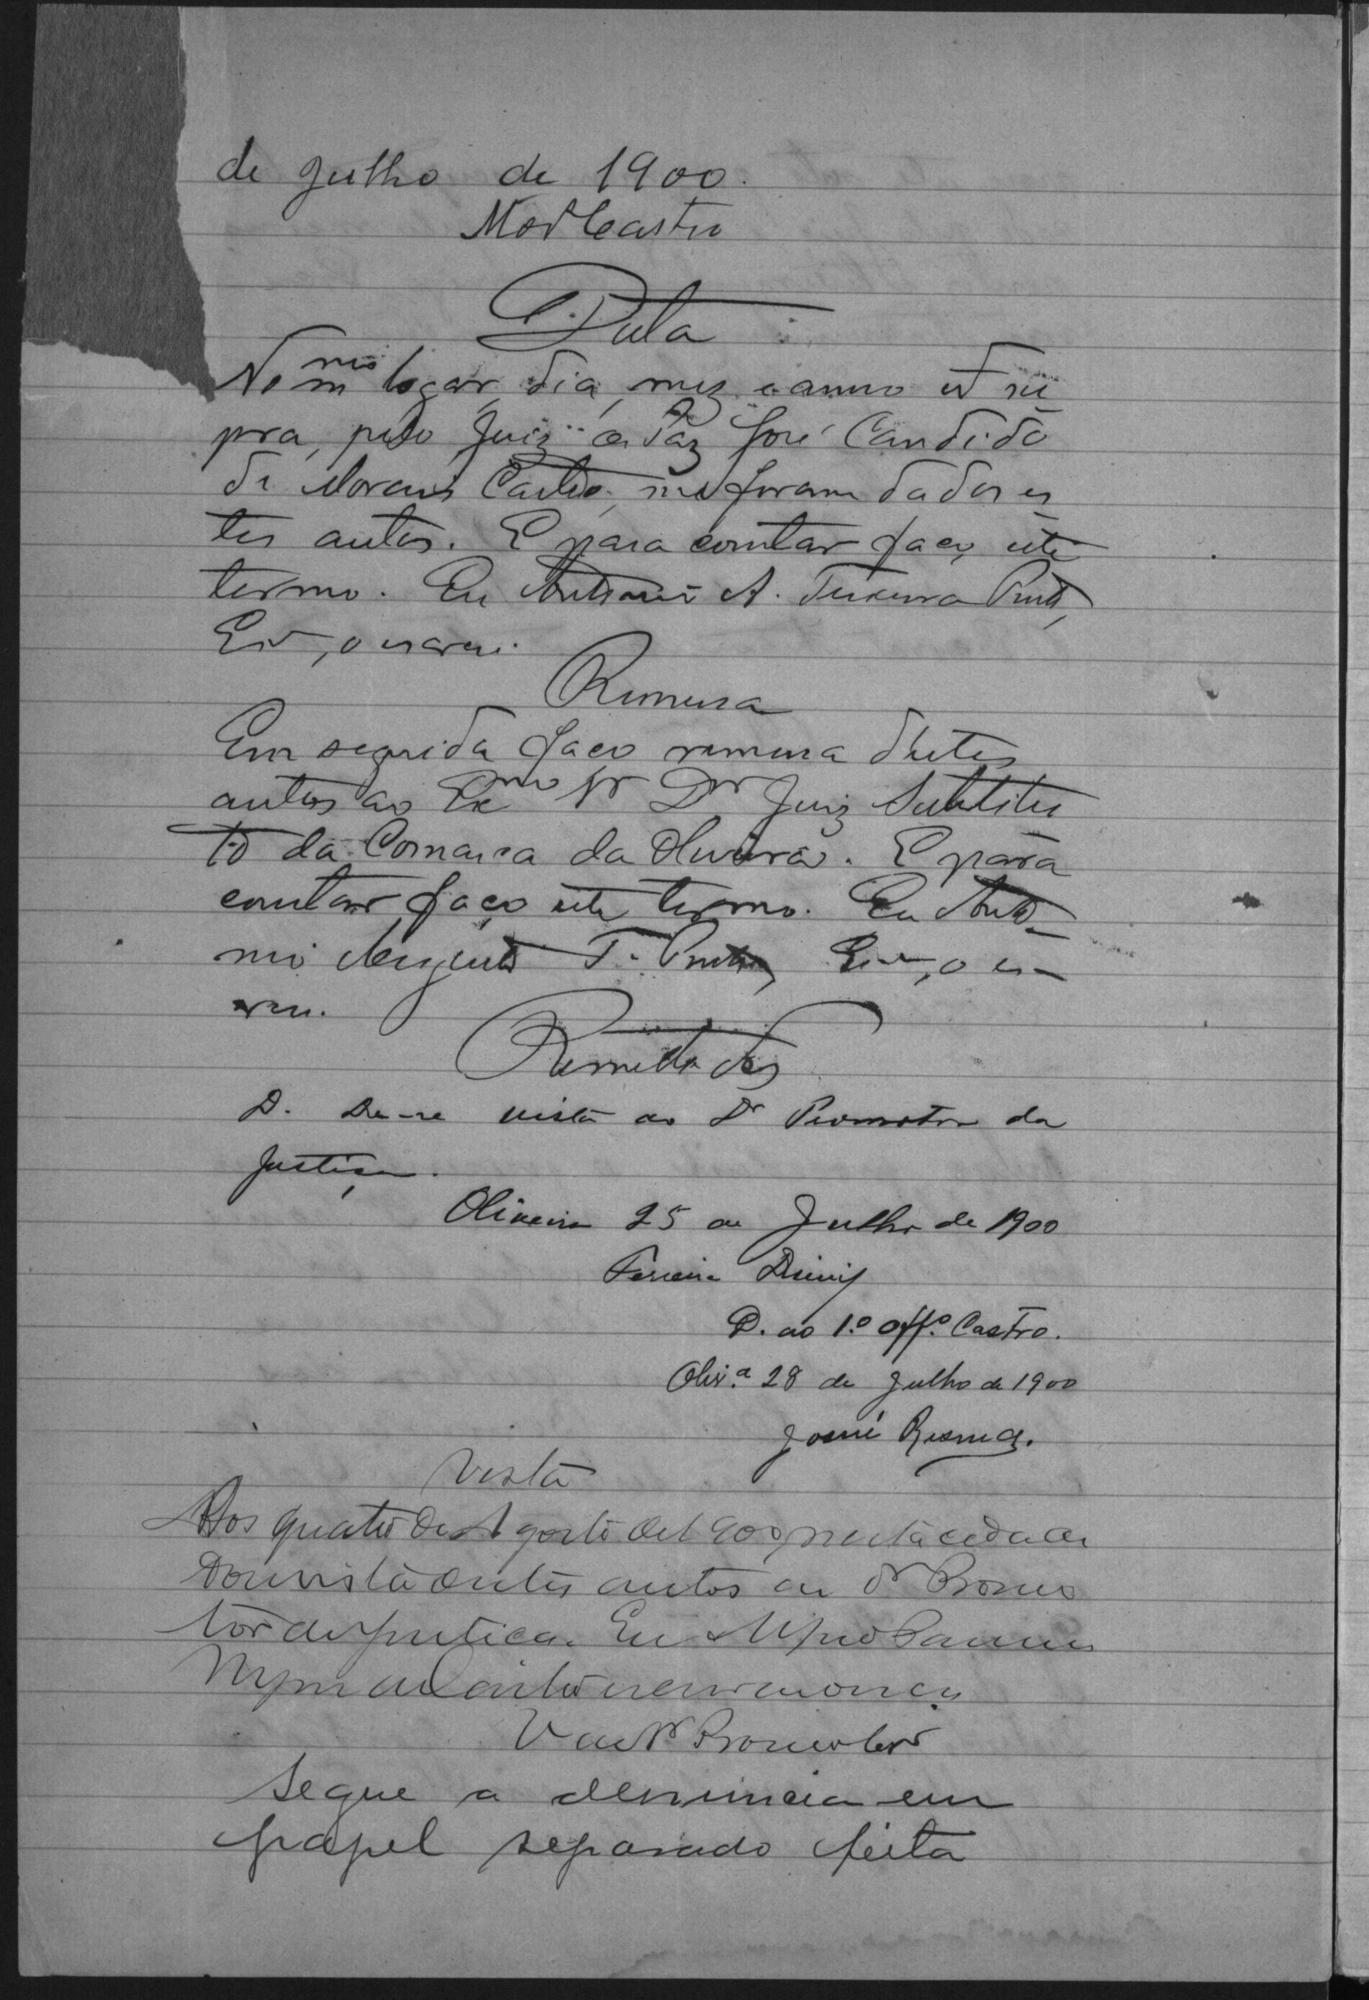 de Julho de 1900.
Mor Castro
Data
No mesmo logar, dia, mez e anno ut su
pra, pelo Juiz de Paz José Candido
de Moraes Castro, me foram dados es
tes autos. E para constar faço este
termo. Eu Antonio A. Teixeira Pinto,
Esc.am, o escrevi.
Remessa
Em seguida faço remessa d'estes
autos ao Exmo Sr Dr Juiz Substitu
to da Comarca da Oliveira. E para
constar faço este termo. Eu Anto-
nio Augusto T. Pinto, Escm, o es-
crevi.
Remettidos
D. De-se vista ao Dr Promotor da
Justiça.
Oliveira 25 de Julho de 1900
Ferreira Diniz
D. ao 1.º Off.º Castro.
Oliv.ª 28 de Julho de 1900
Josué
Vista
Aos quatro de Agosto de 1900, nesta cidade
Dou vista destes autos ao Dr Promo
tor de Justica. Eu
de Castro escrivão o escrevi
V ao Dr Promotor
Segue a denuncia em
papel separado feita